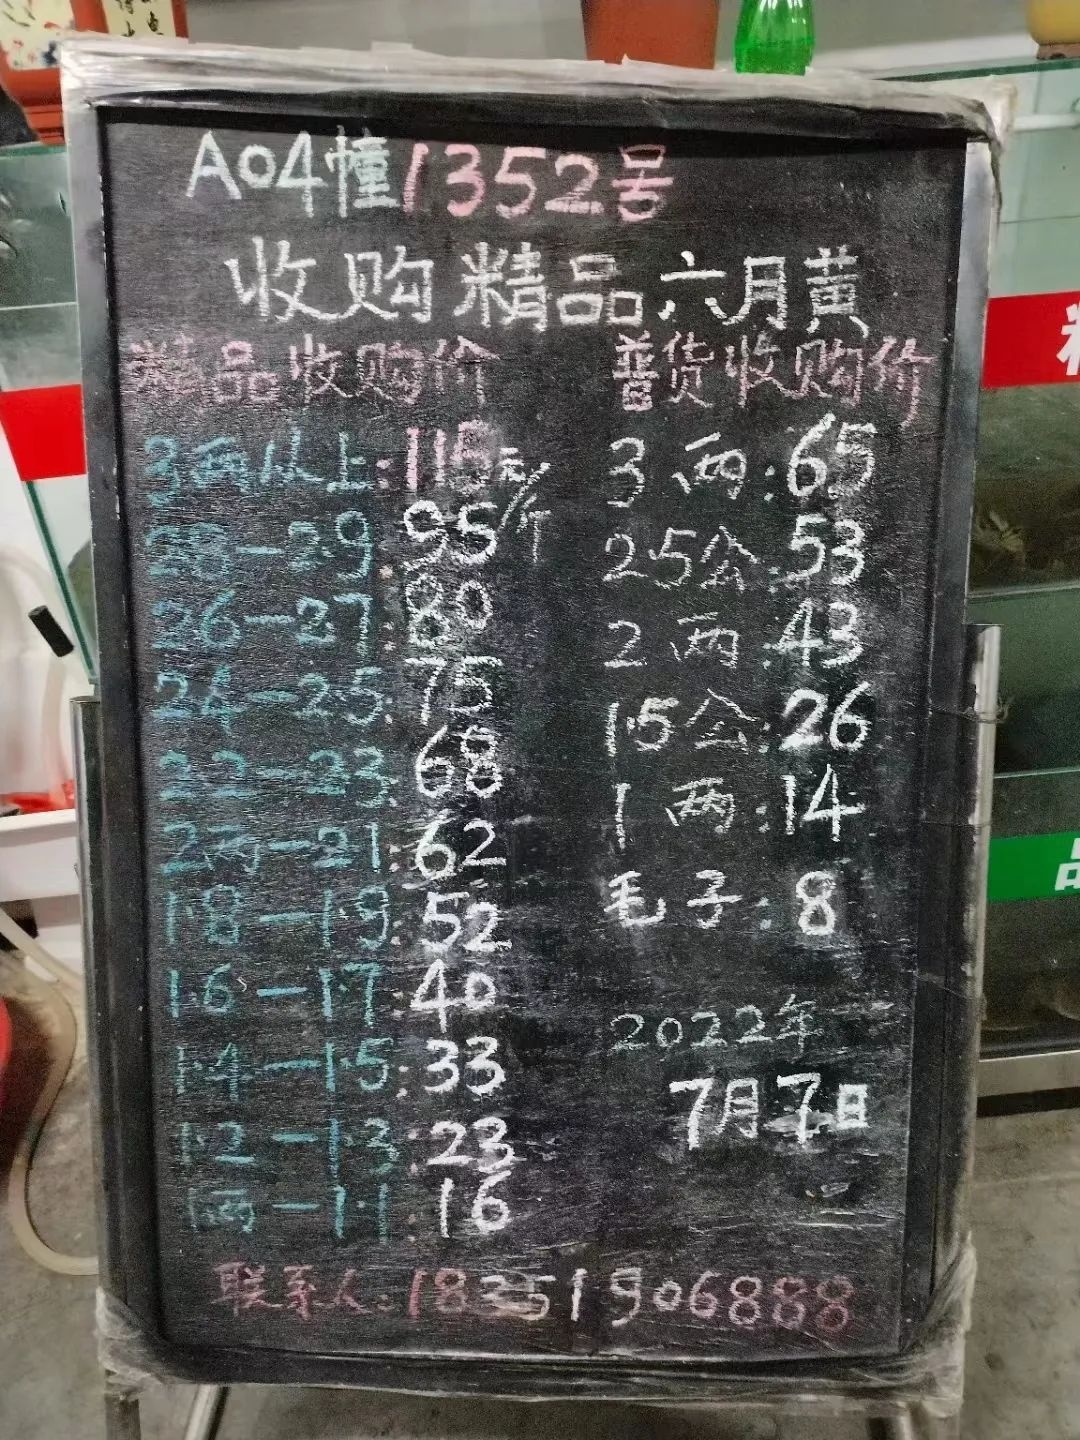 A04幢1352号
收购精品六月黄
精品收购价 普货收购价
3两以上:115元/斤 3两:65
28-29:95 2.5公:53
26-27:80 2两:43
24-25:75 1.5公:26
22-23:68 1两:14
2两-21:62 毛子:8
1.8-1.9:52
1.6-1.7:40 2022年
1.4-1.5:33 7月7日
1.2-1.3:23
1两-1.1:16
联系人:18351906888
品